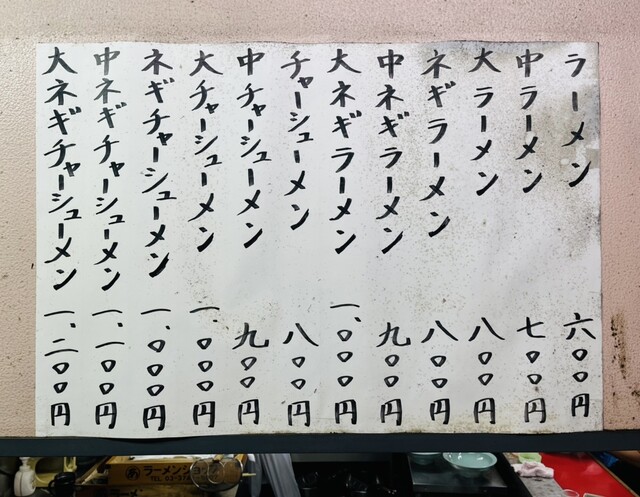 ラーメン 六〇〇円
中ラーメン 七〇〇円
大ラーメン 八〇〇円
ネギラーメン 八〇〇円
中ネギラーメン 九〇〇円
大ネギラーメン 一、〇〇〇円
チャーシューメン 八〇〇円
中チャーシューメン 九〇〇円
大チャーシューメン 一、〇〇〇円
ネギチャーシューメン 一、〇〇〇円
中ネギチャーシューメン 一、一〇〇円
大ネギチャーシューメン 一、二〇〇円
ラーメンショ